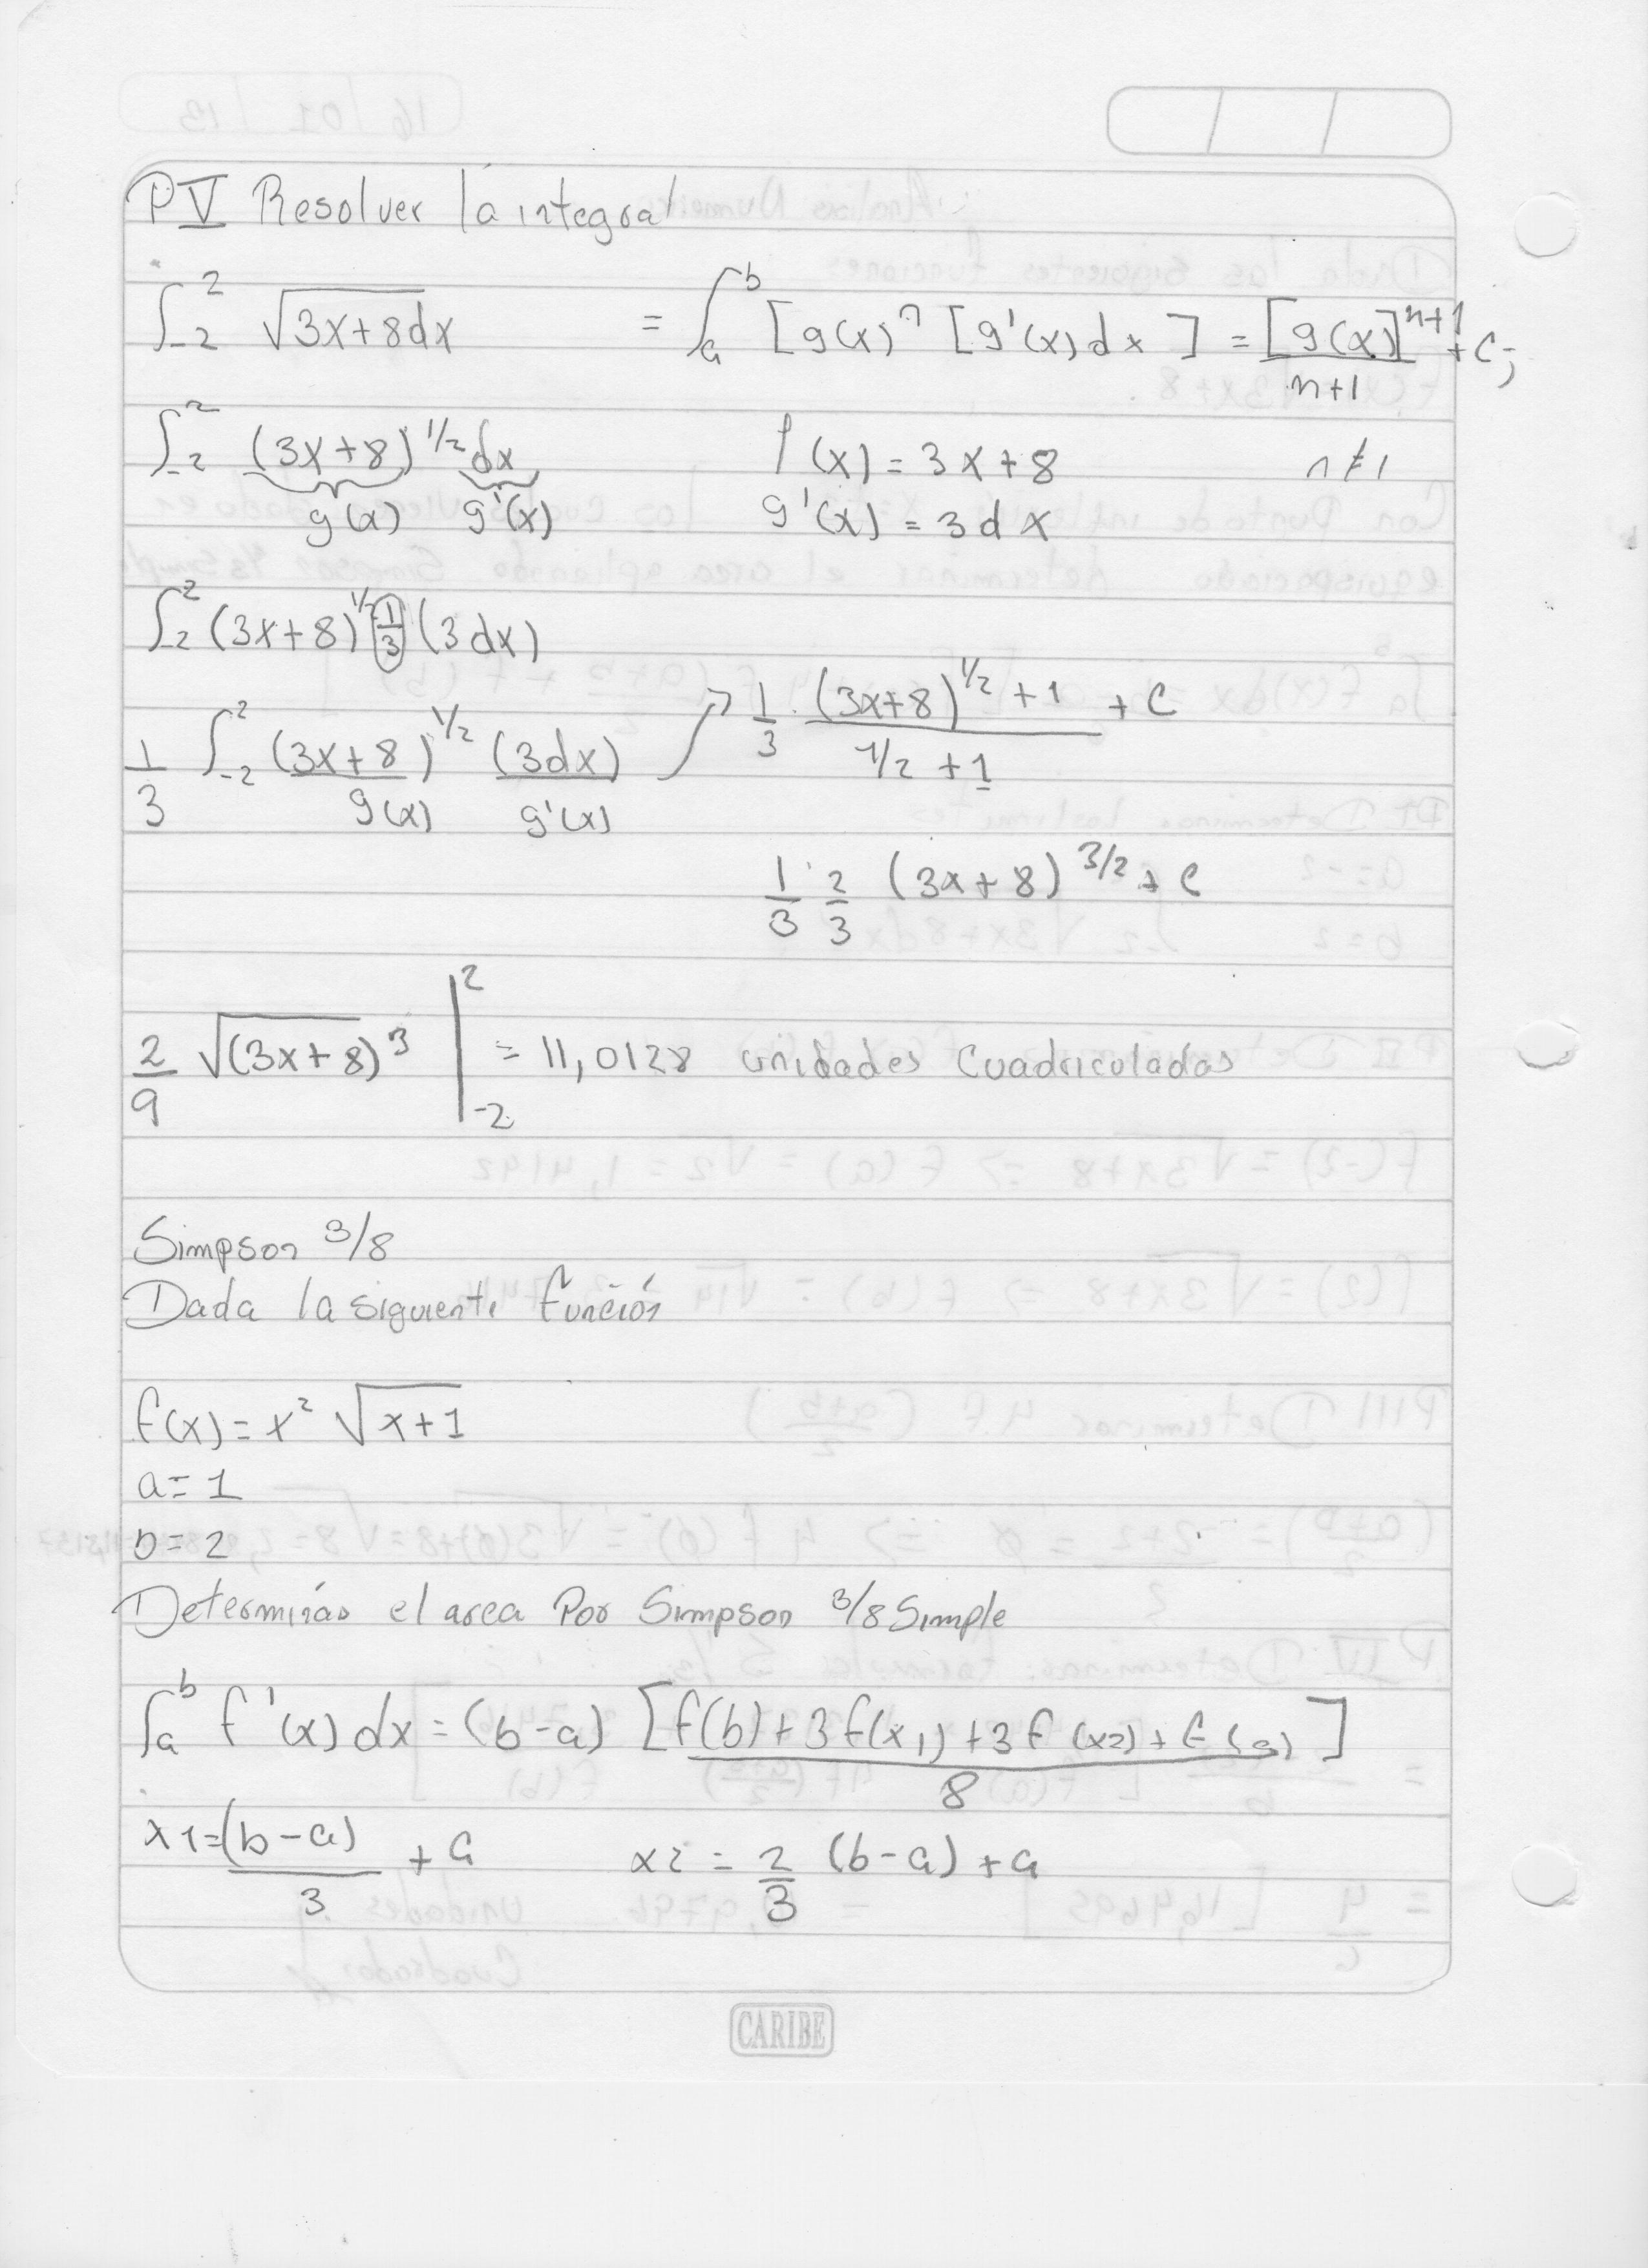 PV Resolver la integral
∫₋₂² √3x+8dx = ∫ₐᵇ [g(x)ⁿ [g'(x)dx] = [g(x)]ⁿ⁺¹/n+1 + C;
∫₋₂² (3x+8)^1/2 dx f(x) = 3x+8 n≠1
g(x) g'(x) g'(x) = 3dx
∫₋₂² (3x+8)^1/2 1/3 (3dx)
1/3 ∫₋₂² (3x+8)^1/2 (3dx) 1/3 · (3x+8)^1/2 + 1 / 1/2 + 1 + C
g(x) g'(x)
1/3 · 2/3 (3x+8)^3/2 + C
2/9 √(3x+8)³ |₋₂² = 11,0128 unidades Cuadriculadas
Simpson 3/8
Dada la siguiente función
f(x) = x² √x+1
a = 1
b = 2
Determinar el area Por Simpson 3/8 Simple
∫ₐᵇ f'(x) dx = (b-a) [f(b) + 3f(x1) + 3f(x2) + f(a) / 8]
x1 = (b-a)/3 + a x2 = 2/3 (b-a) + a
CARIBE